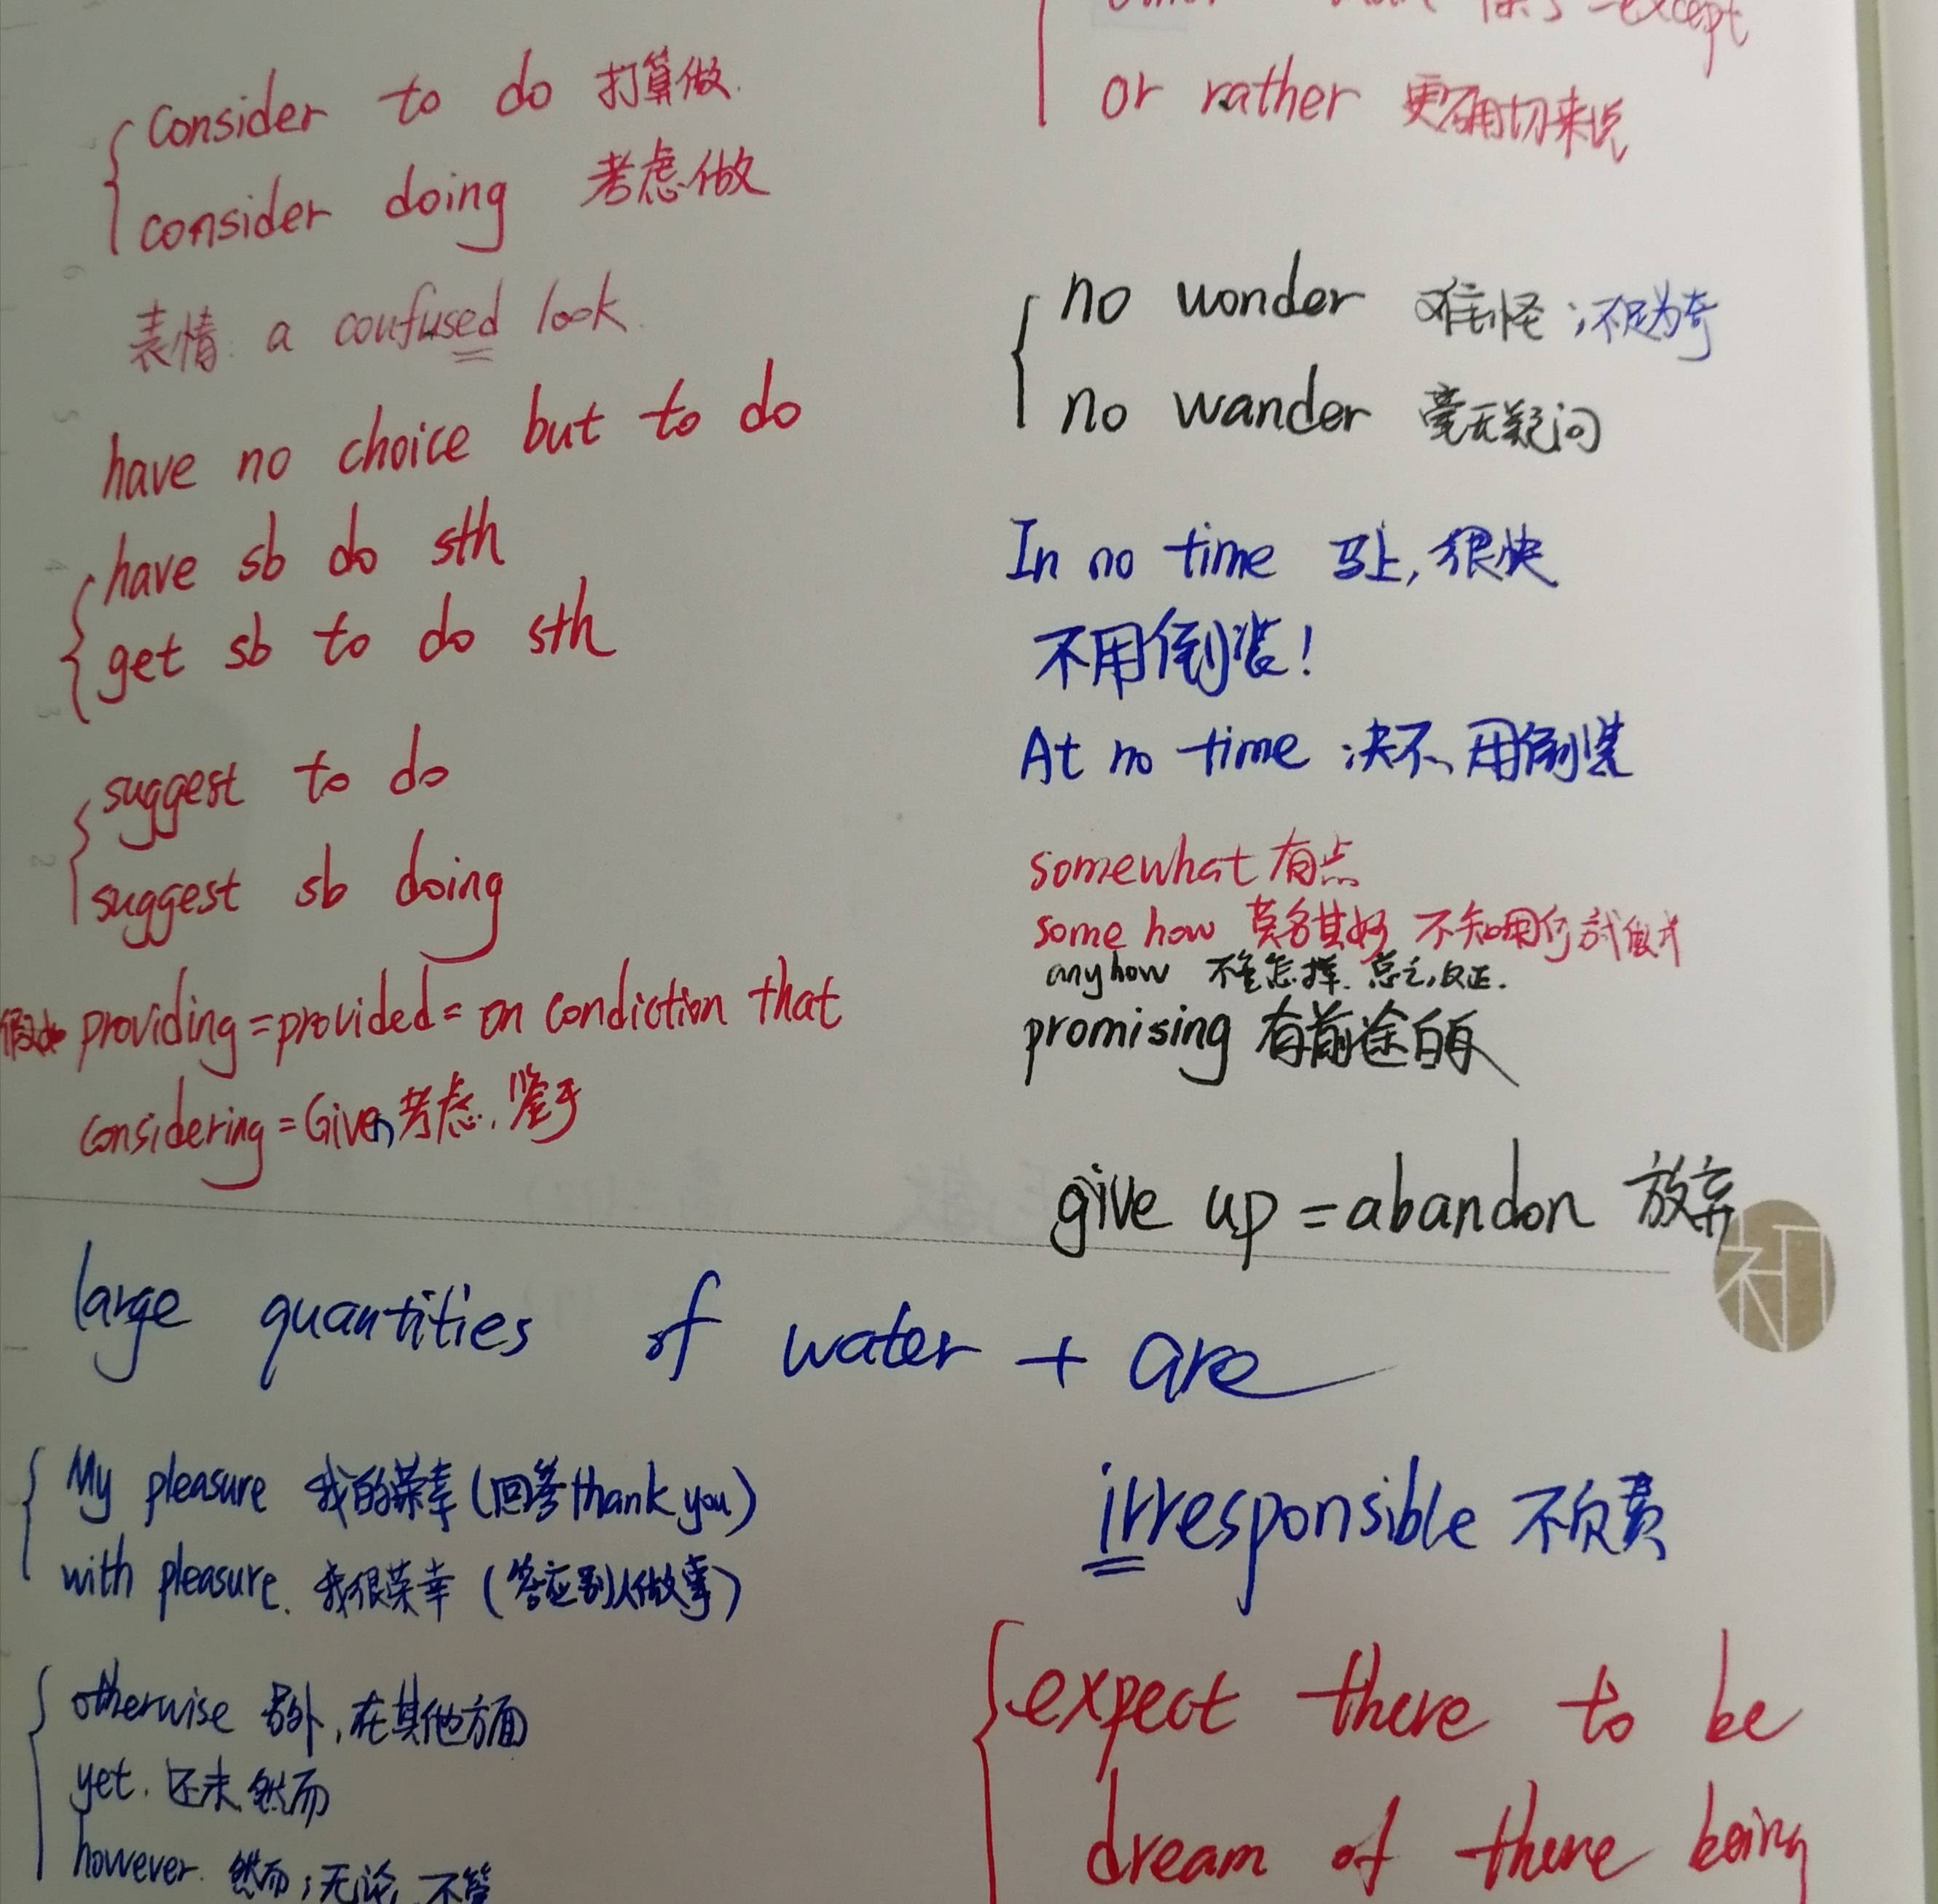 consider to do 打算做.
consider doing 考虑做
表情: a confused look.
have no choice but to do
have sb do sth
get sb to do sth
suggest to do
suggest sb doing
假如 providing=provided= on condiction that
considering=Given 考虑.鉴于
except
or rather 更确切来说
no wonder 难怪;不足为奇
no wander 毫无疑问
In no time 马上,很快
不用倒装!
At no time :决不、用倒装
somewhat 有点
some how 莫名其妙 不知用何
anyhow 不管怎样. 总之,反正.
promising 有前途的
give up =abandon 放弃
初
large quantities of water + are
My pleasure 我的荣幸(回答thank you)
with pleasure. 我很荣幸 (答应别人做事)
irresponsible 不负责
otherwise 另外,在其他方面
yet. 还未 然而
however. 然而;无论、不管
expect there to be
dream of there being